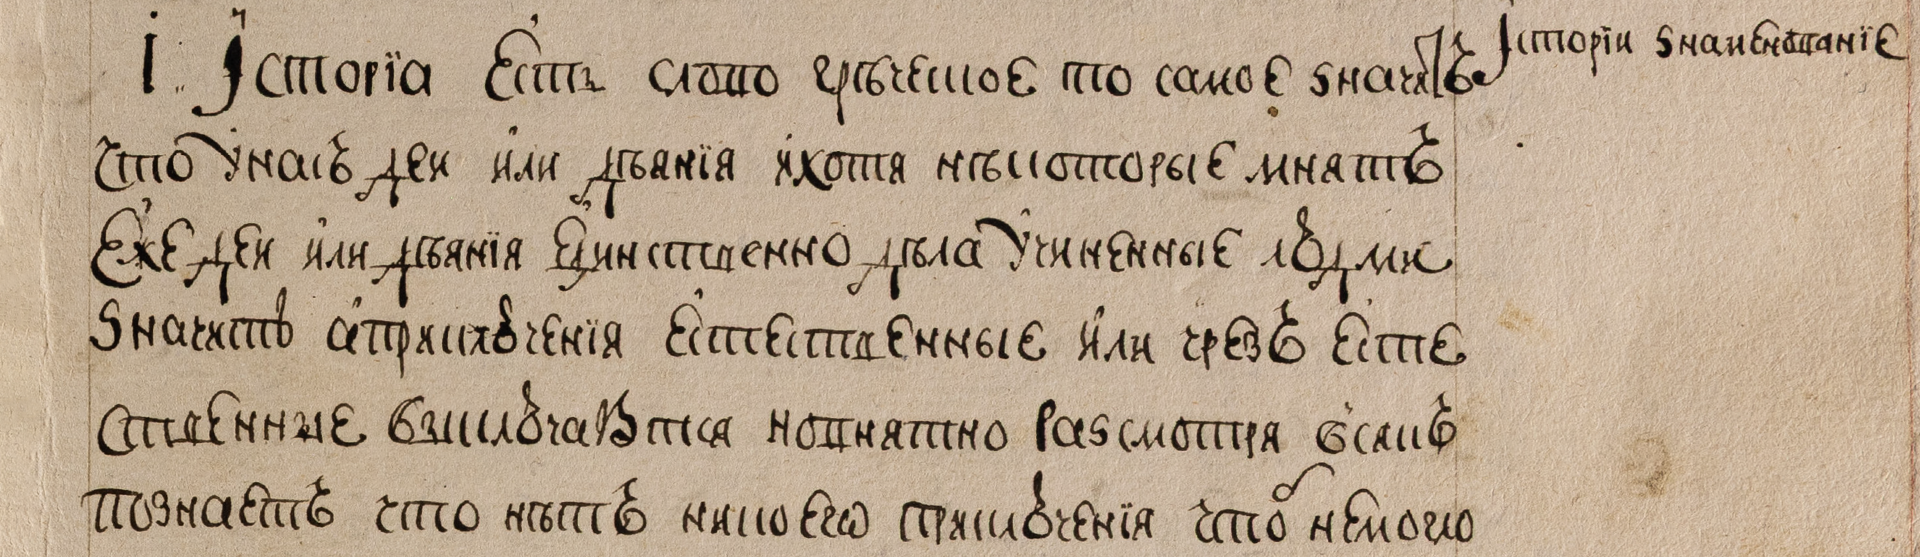 І. Їсторїа есть слово греческое то самое ѕначитъ
Їсторіи ѕнаменованїе
что унасъ деи или дѣянїя ихотя нѣкоторые мнятъ
еже деи или дѣянїя единственно дѣла учиненные людми
ѕначатъ априключенїя естественные или чрезъ есте
ственные выключаются новнятно раѕсмотря всякъ
познаетъ что нѣтъ никоегѡ приключенїя чтоб немогло